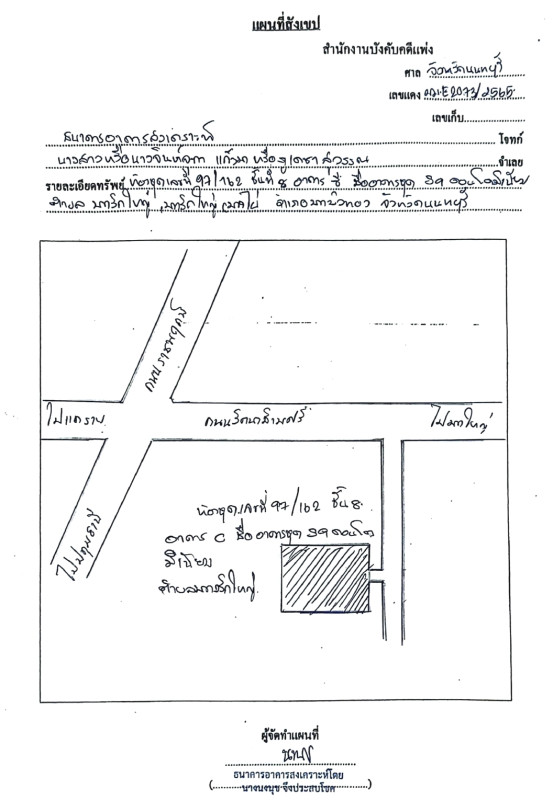 แผนที่สังเขป
สำนักงานบังคับคดีแพ่ง
ศาล จังหวัดนนทบุรี
เลขแดง ผบ.E2073/2565
เลขเก็บ
ธนาคารอาคารสงเคราะห์ โจทก์
นางสาวหรือนางจินต์ แก้ว หรือ สุวรรณ จำเลย
รายละเอียดทรัพย์ ห้องชุดเลขที่ 97/162 ชั้นที่ 8 อาคาร ซี ชื่ออาคารชุด
ตำบล บางรักใหญ่ อำเภอบางบัวทอง จังหวัดนนทบุรี
ถนนราชพฤกษ์
ไปแคราย
ถนนรัตนาธิเบศร์
ไปบางใหญ่
ไปปทุมธานี
ห้องชุดเลขที่ 97/162 ชั้น 8
อาคาร C ชื่ออาคารชุด
มิเนียม
ตำบลบางรักใหญ่
ผู้จัดทำแผนที่
ธนาคารอาคารสงเคราะห์โดย
(นางนงนุช จึงประสบโชค)